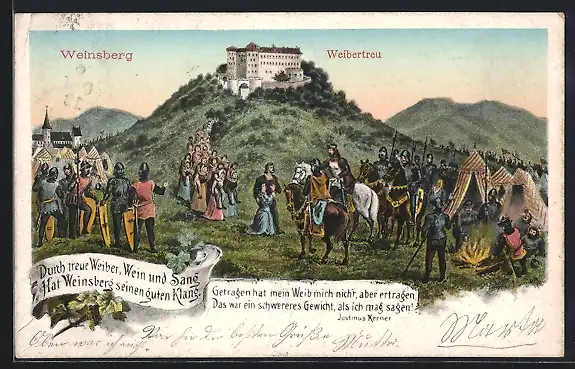 Weinsberg
Weibertreu
Durch treue Weiber, Wein und Sang
Hat Weinsberg seinen guten Klang.
Getragen hat mein Weib mich nicht, aber ertragen,
Das war ein schwereres Gewicht, als ich mag sagen!
Justinus Kerner
Oben war auch ich.
die besten Grüße
Mutter